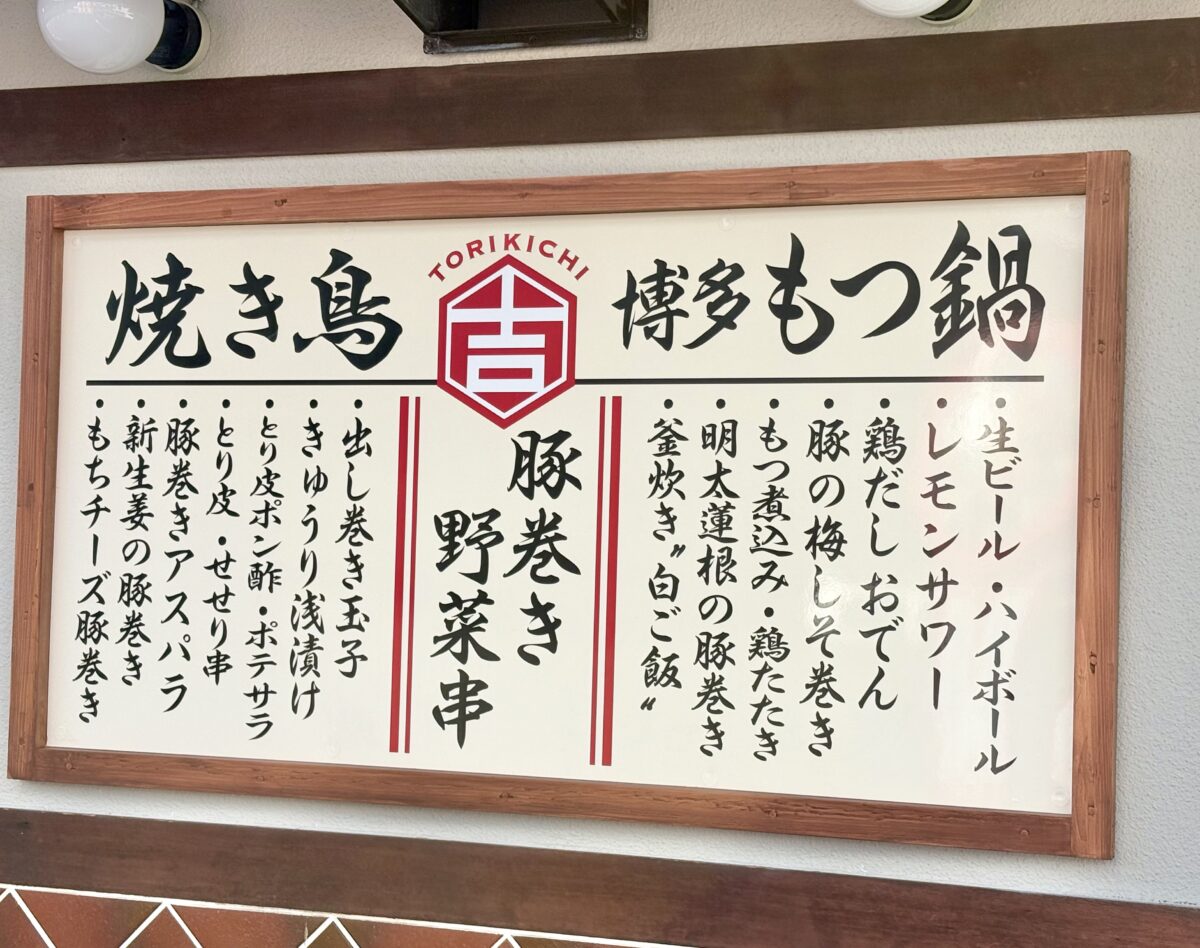 焼き鳥
TORIKICHI
吉
博多もつ鍋
・生ビール・ハイボール
・レモンサワー
・鶏だしおでん
・豚の梅しそ巻き
・もつ煮込み・鶏たたき
・明太蓮根の豚巻き
・釜炊き〝白ご飯〟
豚巻き
野菜串
・出し巻き玉子
・きゅうり浅漬け
・とり皮ポン酢・ポテサラ
・とり皮・せせり串
・豚巻きアスパラ
・新生姜の豚巻き
・もちチーズ豚巻き